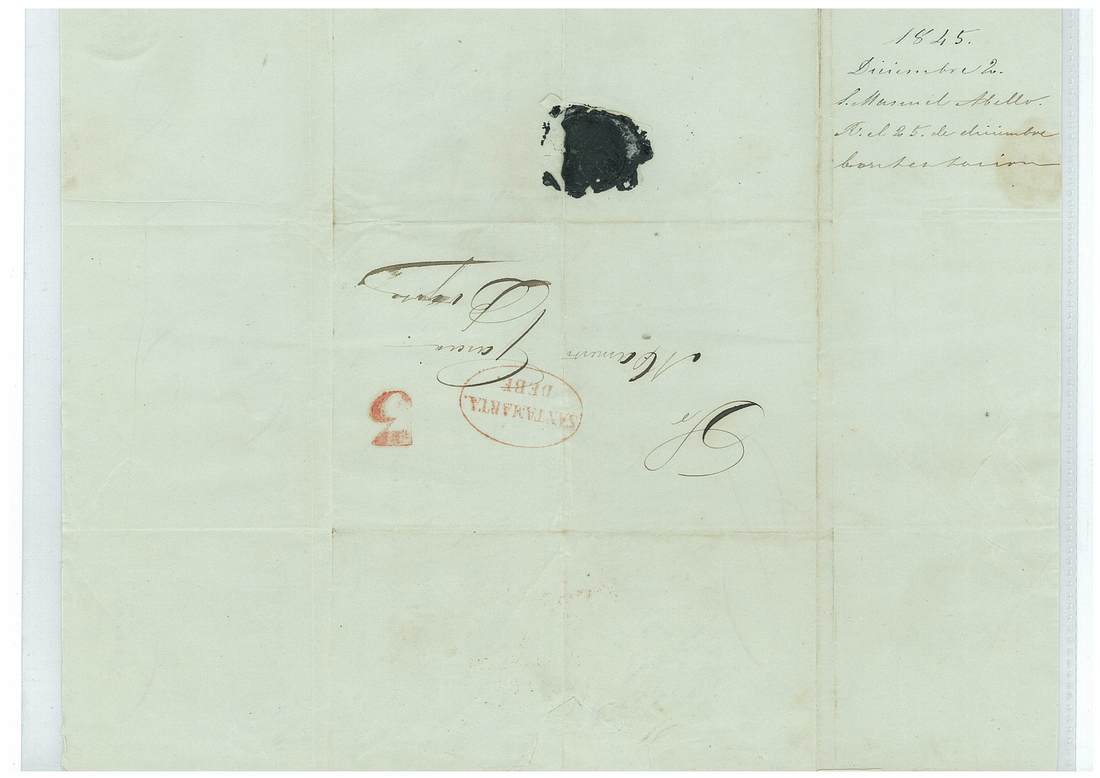 1845.
Diciembre 2.
S. Manuel Abello.
R. el 25. de diciembre
Contestacion
Sr
Mamerto
Garcia
Bogota
SANTAMARTA.
DEBE
3